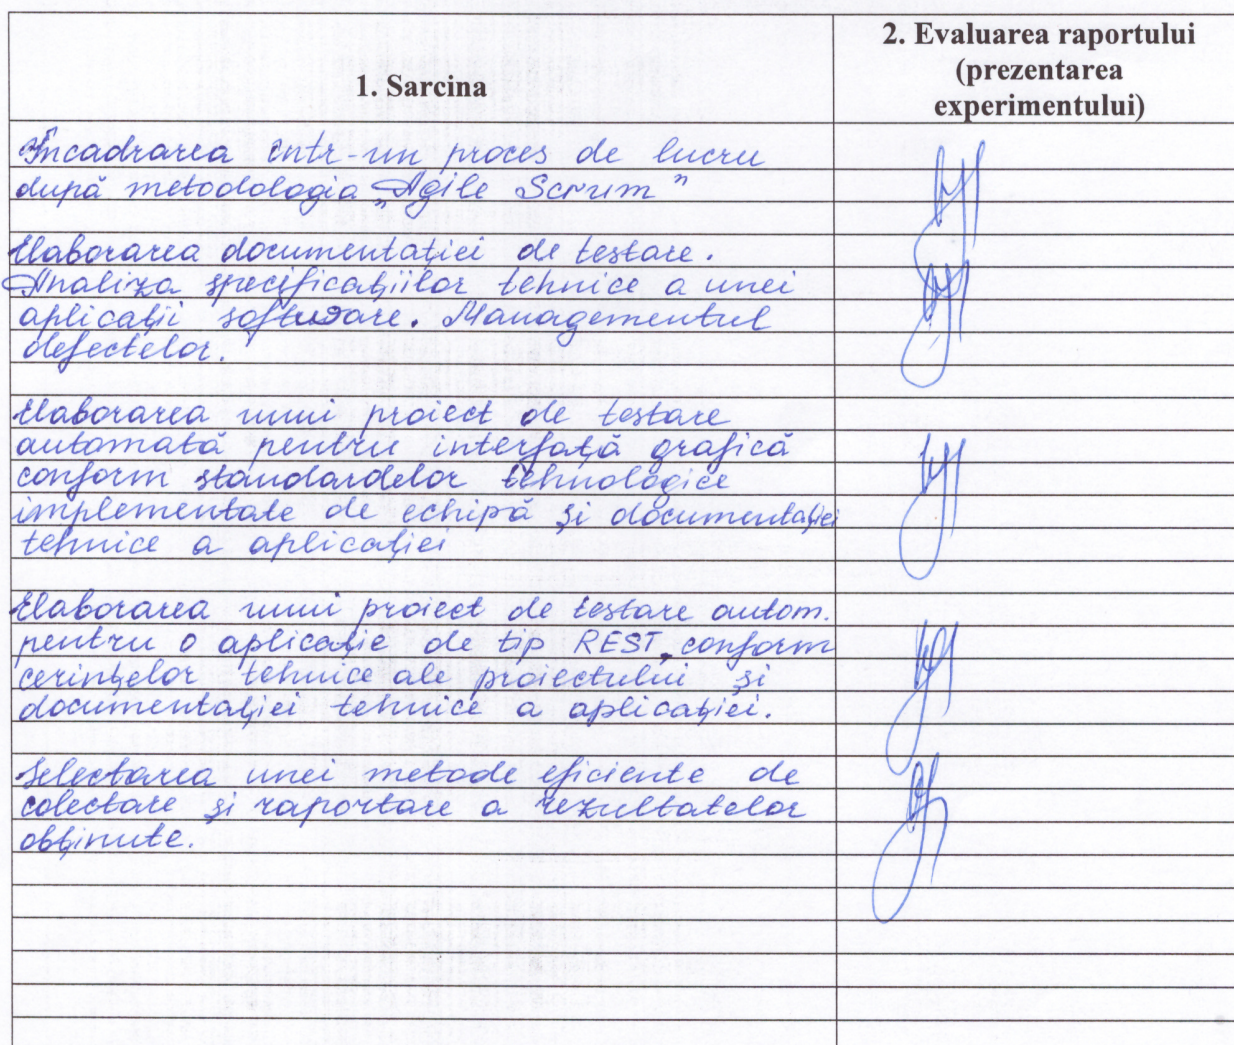 1. Sarcina
2. Evaluarea raportului
(prezentarea
experimentului)
Încadrarea într-un proces de lucru
după metodologia „Agile Scrum”
Elaborarea documentației de testare.
Analiza specificațiilor tehnice a unei
aplicații software. Managementul
defectelor.
Elaborarea unui proiect de testare
automată pentru interfață grafică
conform standardelor tehnologice
implementate de echipă și documentației
tehnice a aplicației
Elaborarea unui proiect de testare autom.
pentru o aplicație de tip REST, conform
cerințelor tehnice ale proiectului și
documentației tehnice a aplicației.
Selectarea unei metode eficiente de
colectare și raportare a rezultatelor
obținute.